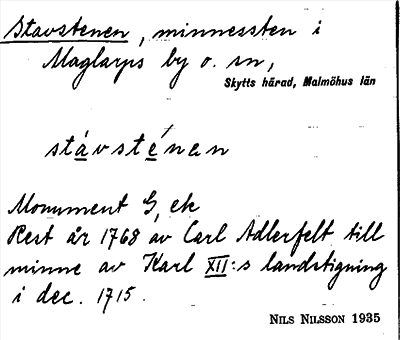 Stavstenen, minnessten i
Maglarps by o. sn,
Skytts härad, Malmöhus län
stávsténen
Monument G, ek
Rest år 1768 av Carl Adlerfelt till
minne av Karl XII:s landstigning
i dec. 1715.
NILS NILSSON 1935